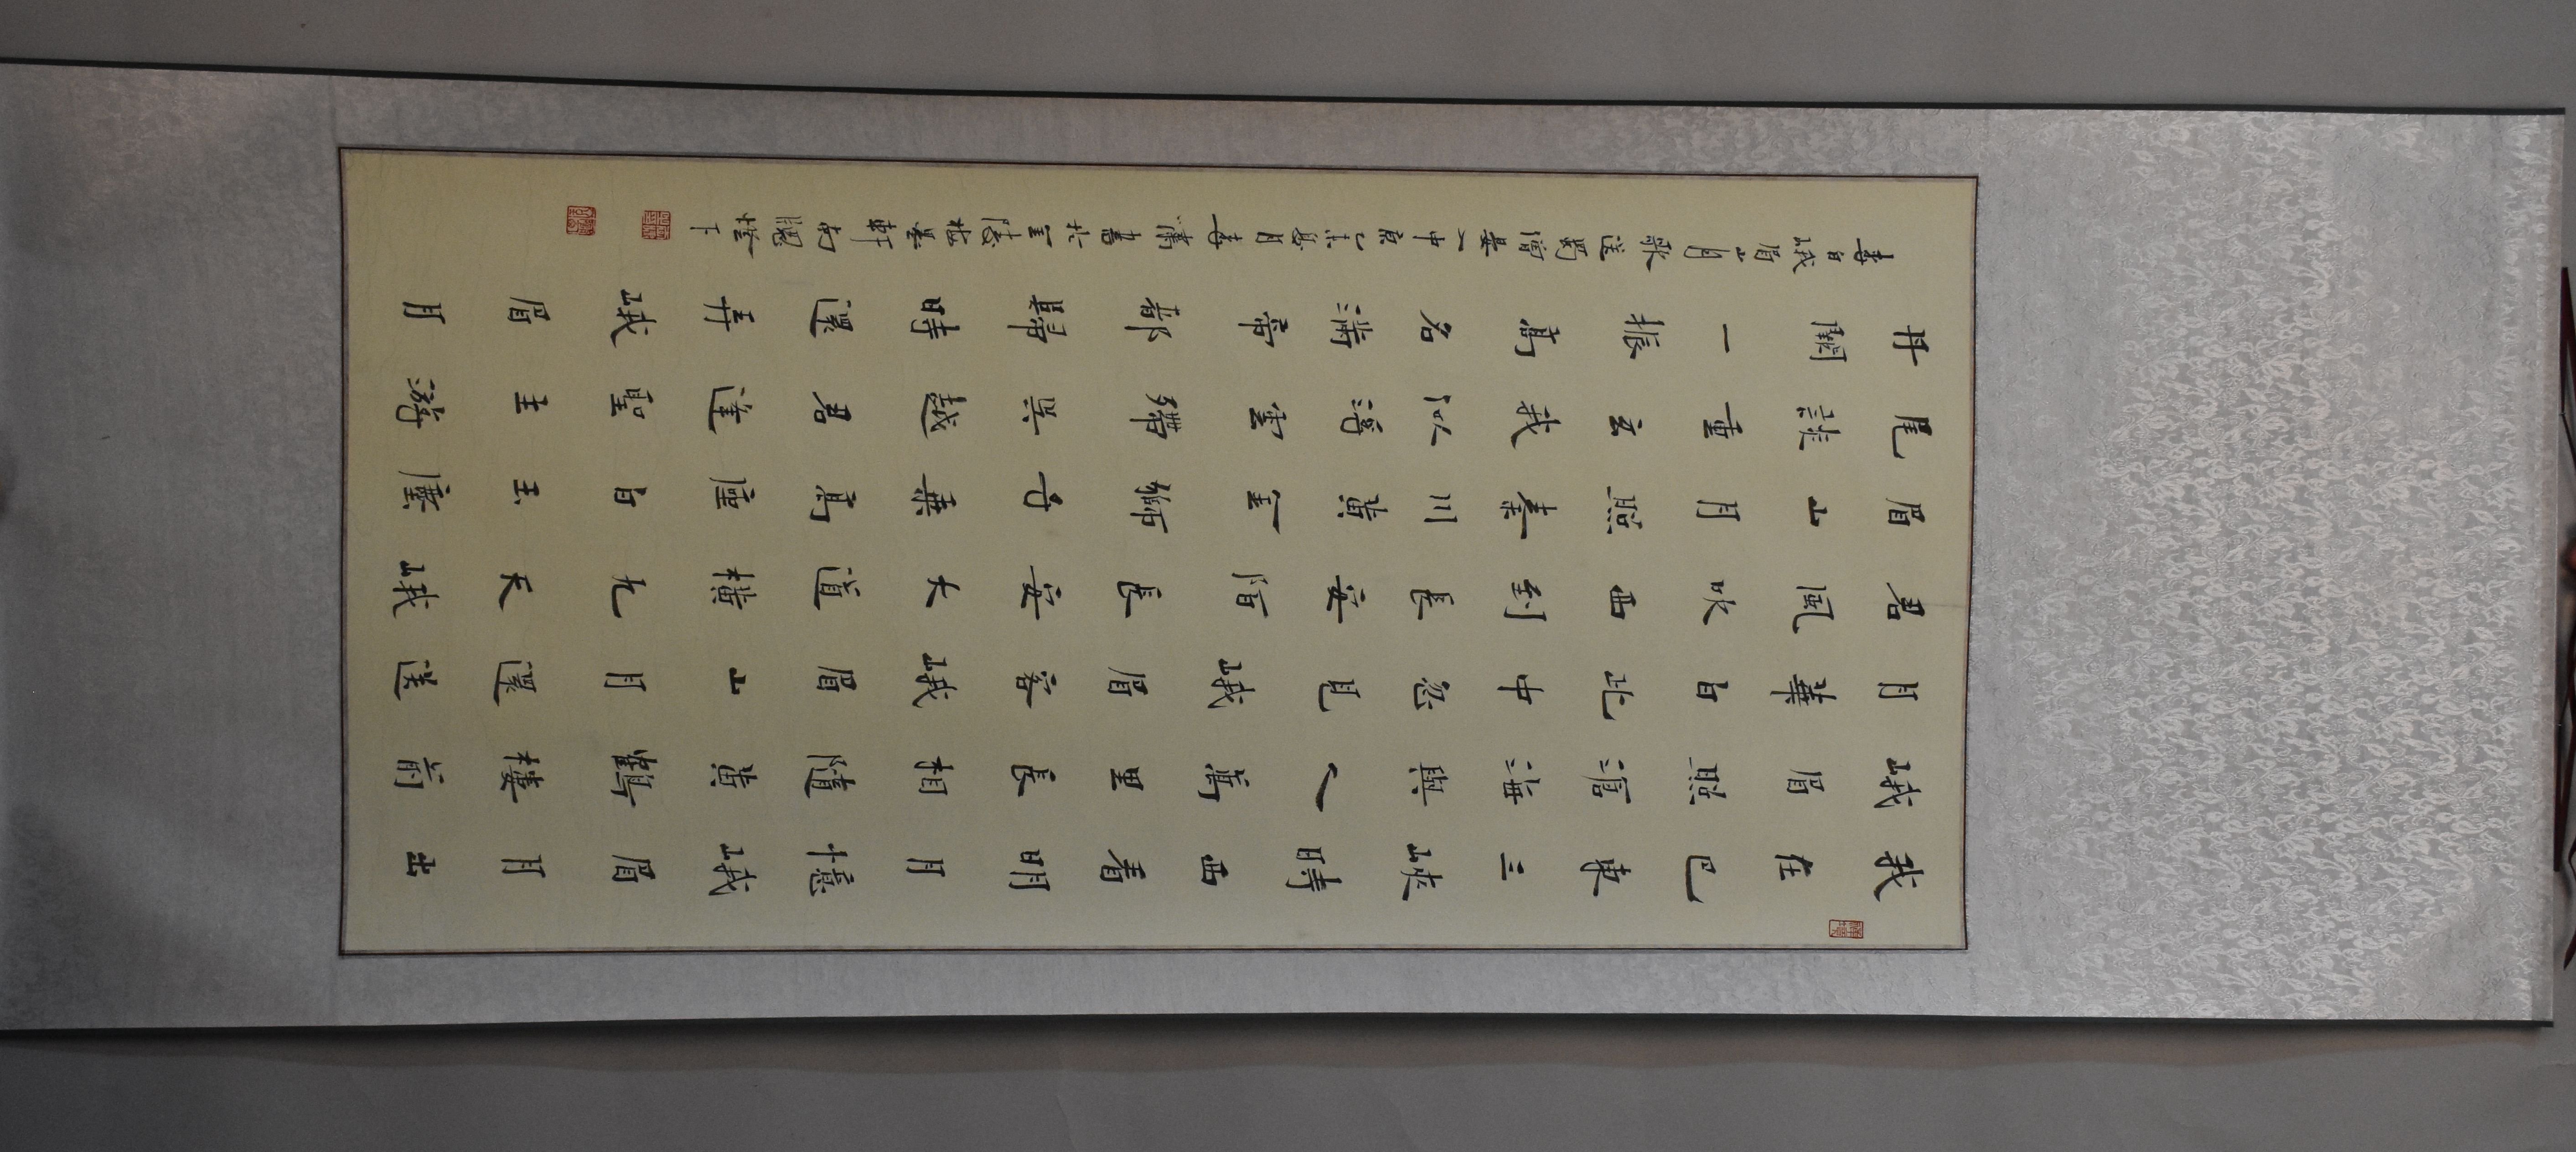 我在巴東三峽時西看明月憶峨眉月出
峨眉照滄海與人萬里長相隨黃鶴樓前
月華白此中忽見峨眉客峨眉山月還送
君風吹西到長安陌長安大道橫九天峨
眉山月照秦川黃金獅子乘高座白玉麈
尾談重玄我似浮雲殢吳越君逢聖主游
丹闕一振高名滿帝都歸時還弄峨眉月
李白峨眉山月歌送蜀僧晏入中京書於金陵梅墨軒南窗燈下